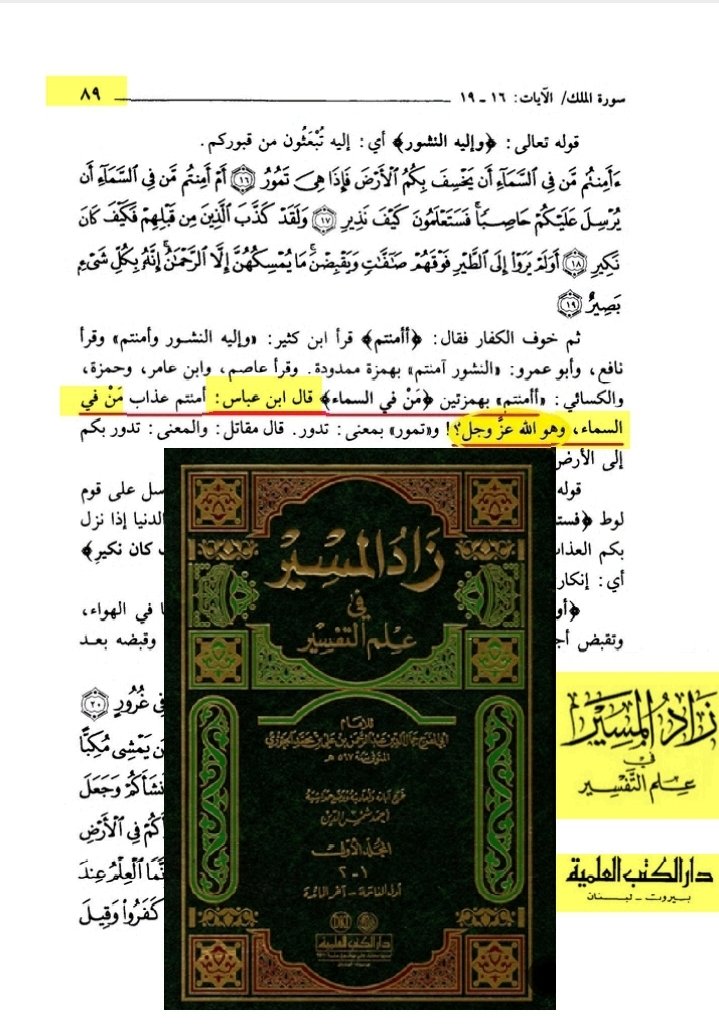 سورة الملك/ الآيات: ١٦ - ١٩
٨٩
قوله تعالى: ﴿وإليه النشور﴾ أي: إليه تُبْعَثُون من قبوركم.
ءَأَمِنتُم مَّن فِي ٱلسَّمَآءِ أَن يَخْسِفَ بِكُمُ ٱلْأَرْضَ فَإِذَا هِيَ تَمُورُ ١٦ أَمْ أَمِنتُم مَّن فِي ٱلسَّمَآءِ أَن
يُرْسِلَ عَلَيْكُمْ حَاصِبًا فَسَتَعْلَمُونَ كَيْفَ نَذِيرِ ١٧ وَلَقَدْ كَذَّبَ ٱلَّذِينَ مِن قَبْلِهِمْ فَكَيْفَ كَانَ
نَكِيرِ ١٨ أَوَلَمْ يَرَوْا إِلَى ٱلطَّيْرِ فَوْقَهُمْ صَٰٓفَّٰتٍ وَيَقْبِضْنَ مَا يُمْسِكُهُنَّ إِلَّا ٱلرَّحْمَٰنُ إِنَّهُۥ بِكُلِّ شَيْءٍ
بَصِيرٌ ١٩
ثم خوف الكفار فقال: ﴿أأمنتم﴾ قرأ ابن كثير: «وإليه النشور وأمنتم» وقرأ
نافع، وأبو عمرو: «النشور آمنتم» بهمزة ممدودة. وقرأ عاصم، وابن عامر، وحمزة،
والكسائي: «أأمنتم» بهمزتين ﴿مَنْ في السماء﴾ قال ابن عباس: أمنتم عذاب مَنْ في
السماء، وهو الله عزَّ وجل؟! و«تمور» بمعنى: تدور. قال مقاتل: والمعنى: تدور بكم
إلى الأرض
قوله
سل على قوم
لوط ﴿فستـ
الدنيا إذا نزل
بكم العذاب
ـ كان نكير﴾
أي: إنكار
﴿أو
ـا في الهواء،
وتقبض أجـ
وقبضه بعد
فِي غُرُورٍ ٢٠
ـن يَمْشِي مُكِبًّا
ـنشَأَكُمْ وَجَعَلَ
ـأَكُمْ فِي ٱلْأَرْضِ
ـنَّمَا ٱلْعِلْمُ عِندَ
كَفَرُوا وَقِيلَ
زاد المسير
في
علم التفسير
للإمام
أبي الفرج جمال الدين عبد الرحمن بن علي بن محمد الجوزي
المتوفى سنة ٥٩٧ هـ
خرج آياته وأحاديثه ووضع حواشيه
أحمد شمس الدين
المجلد الأول
١ - ٢
أول الفاتحة - آخر المائدة
DKI
دار الكتب العلمية
زَادُ المَسِيْر
في
عِلمِ التَّفْسِير
دار الكتب العلمية
بيروت - لبنان